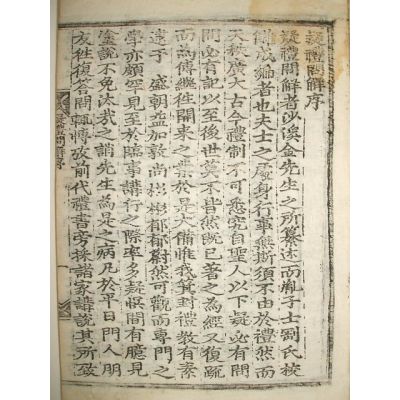 疑禮問解序
疑禮問解者沙溪金先生之所纂述而胤子士剛氏校
讎成編者也夫士之處身行事無斯須不由於禮然而
天秩廣大古今禮制不可悉究自聖人以下疑必有問
問必有記以至後世莫不皆然旣已著之為經又復疏
而為傳繼往開來之業於是大備惟我箕封禮敎有素
逮于 盛朝益加敦尚彬彬郁郁蔚然可觀而專門之
學亦頗罕見至於臨事講行之際率多疑悞間有臆見
塗說不免汰哉之誚先生為是之病乃於平日門人朋
友往復答問輒博攷前代禮書旁採諸家講說其所致